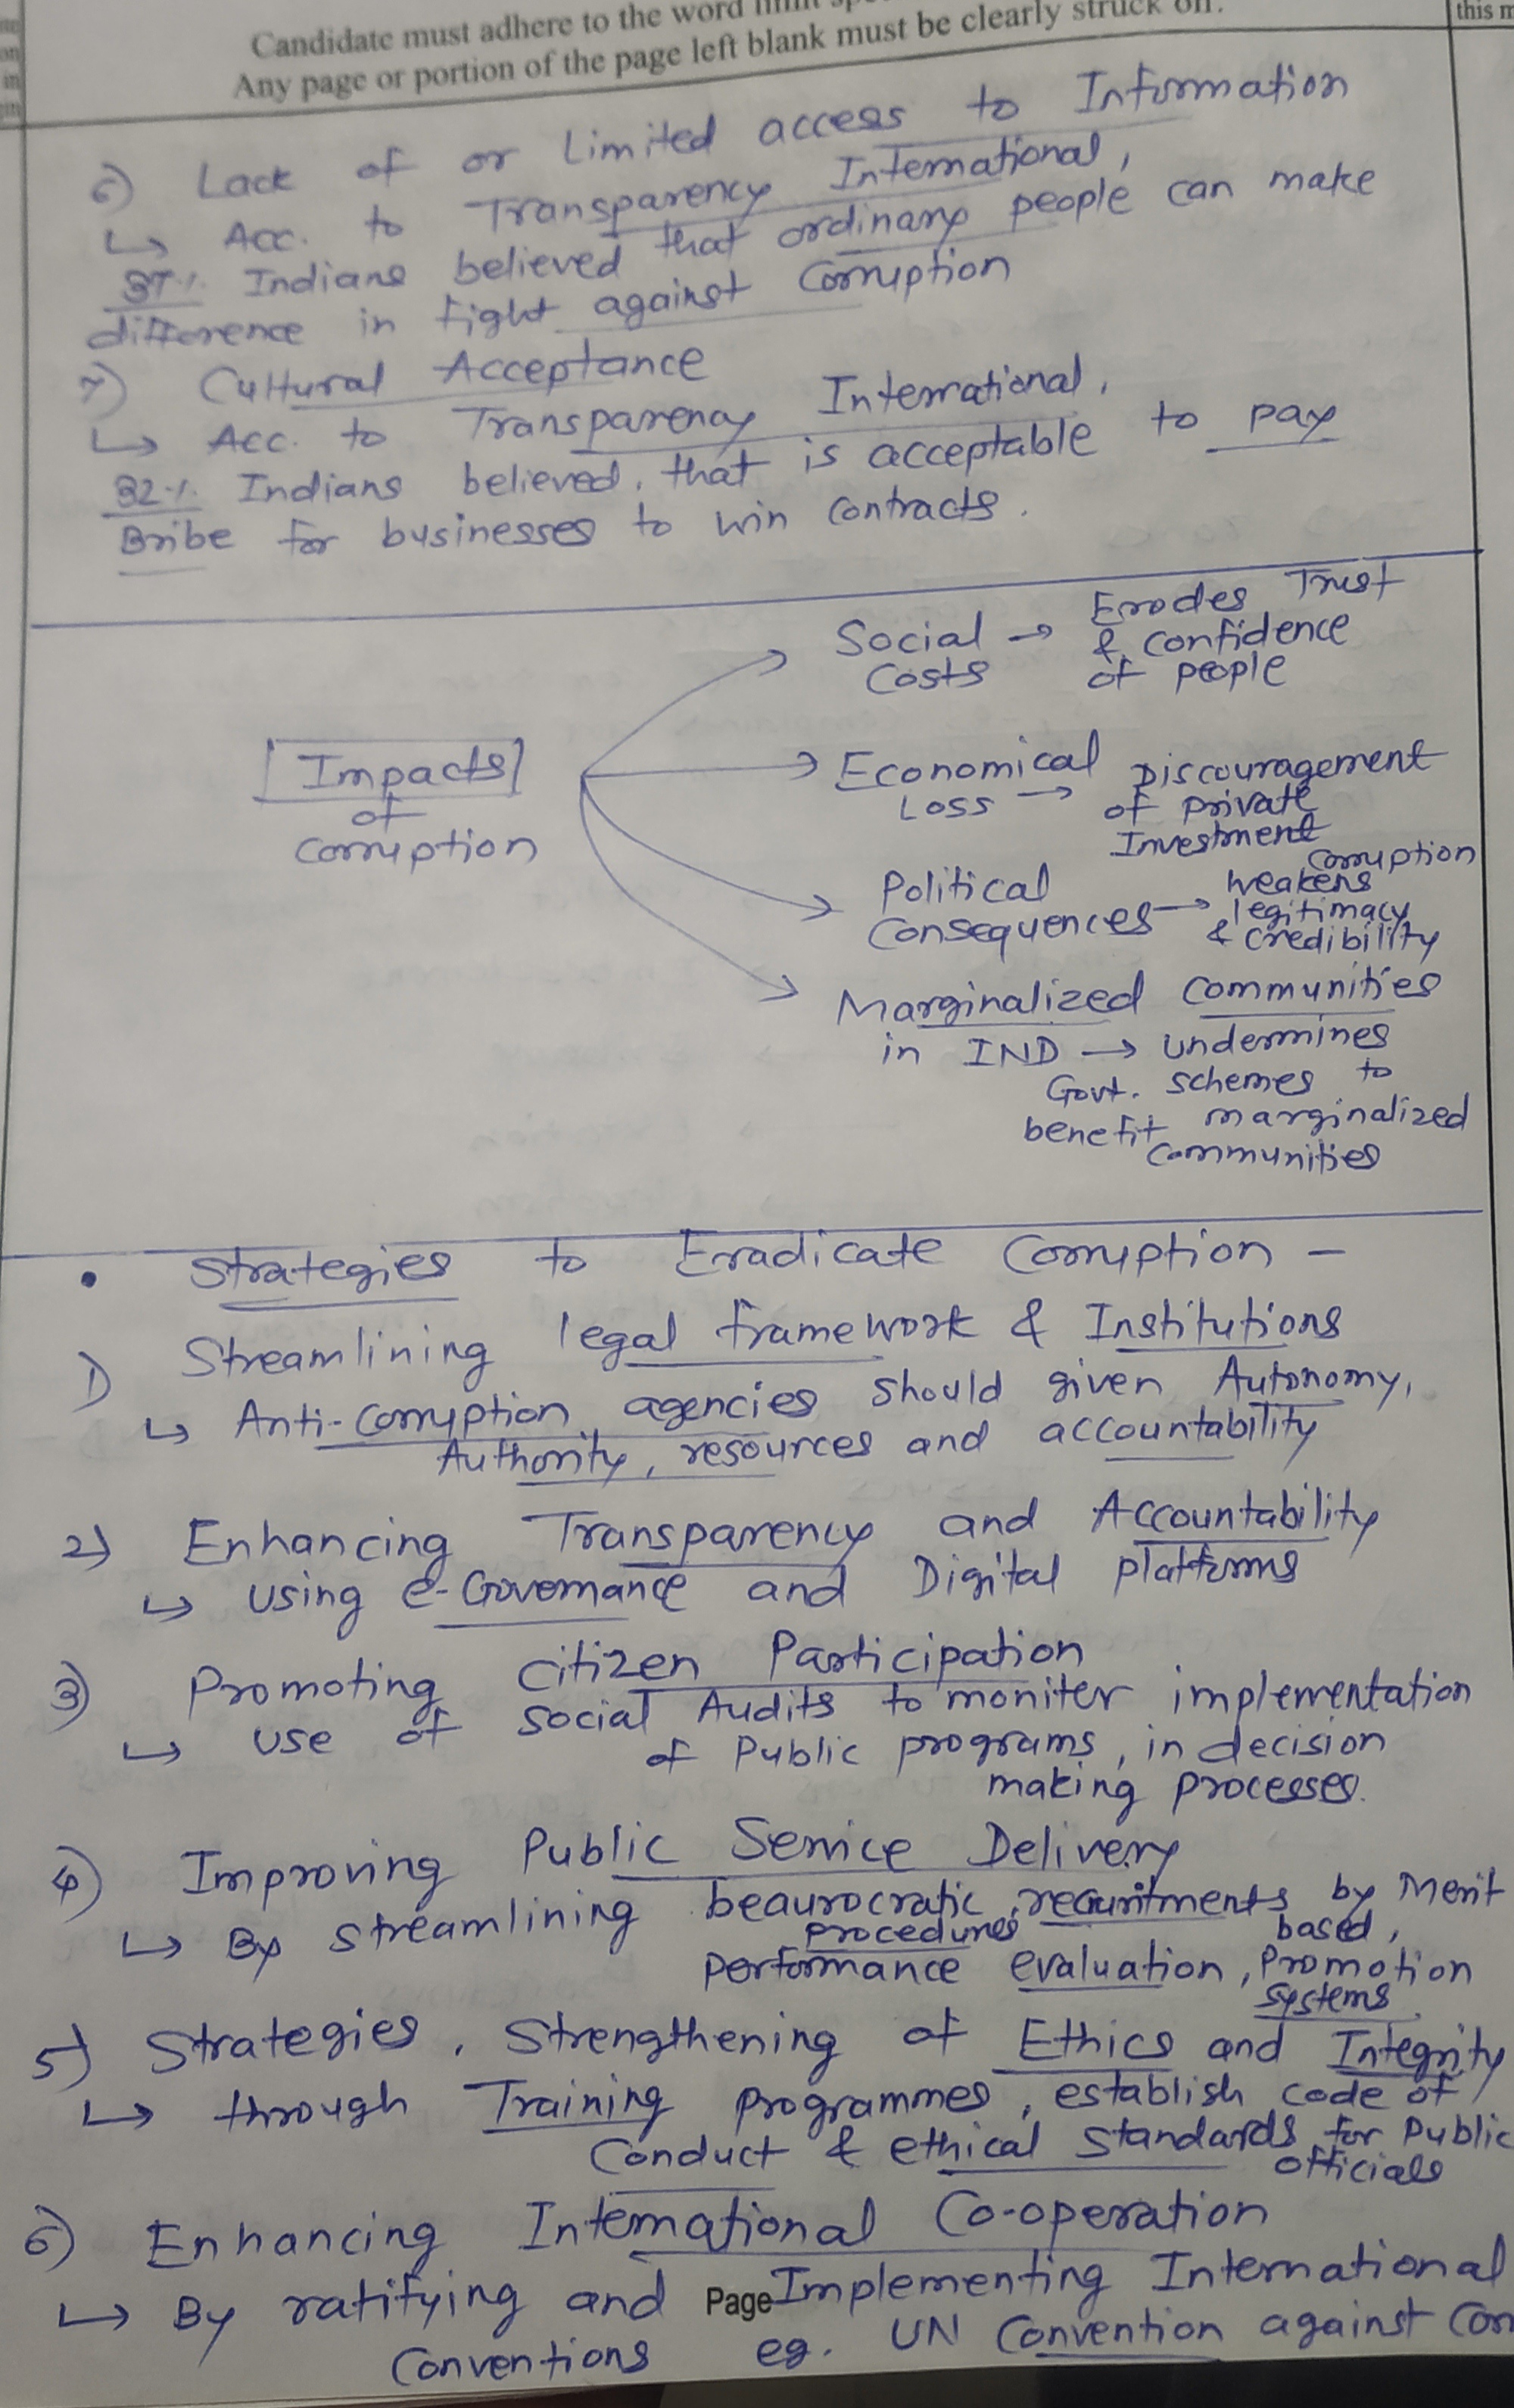 Candidate must adhere to the word limit
Any page or portion of the page left blank must be clearly struck off.
this m
6) Lack of or Limited access to Information
↳ Acc. to Transparency International,
37% Indians believed that ordinary people can make
difference in fight against Corruption
7) Cultural Acceptance
↳ Acc. to Transparency International,
32% Indians believed, that is acceptable to pay
Bribe for businesses to win contracts.
Impacts of corruption
Social Costs → Erodes Trust & confidence of people
Economical Loss → Discouragement of private Investment
Political Consequences → corruption weakens legitimacy & credibility
Marginalized communities
in IND → undermines
Govt. schemes to
benefit marginalized
communities
• Strategies to Eradicate Corruption –
1) Streamlining legal framework & Institutions
↳ Anti-corruption agencies should given Autonomy,
Authority, resources and accountability
2) Enhancing Transparency and Accountability
↳ using e-Governance and Digital platforms
3) Promoting citizen Participation
↳ use of social Audits to moniter implementation
of Public programs, in decision
making processes.
4) Improving Public Service Delivery
↳ By streamlining beaurocratic procedures, recruitments by Merit based,
performance evaluation, Promotion systems
5) Strategies, Strengthening of Ethics and Integrity
↳ through Training programmes, establish code of
Conduct & ethical standards for Public officials
6) Enhancing International Co-operation
↳ By ratifying and Implementing International
Page
Conventions eg. UN Convention against